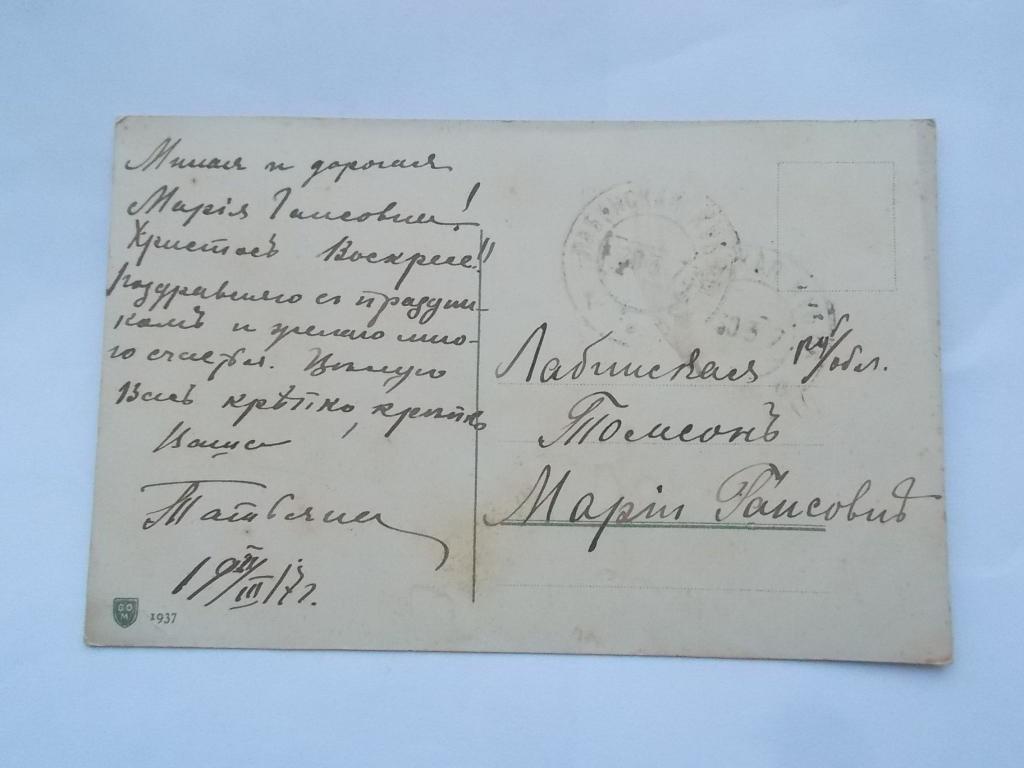 Милая и дорогая
Марія Гансовна!
Христосъ Воскресе!!
Поздравляю съ праздни-
комъ и желаю мно-
го счастья. Цѣлую
Васъ крѣпко, крѣпко
Ваша
Татьяна
1937
ЛАБИНСКАЯ
Лабинская обл.
Томсонъ
Маріи Гансовнѣ